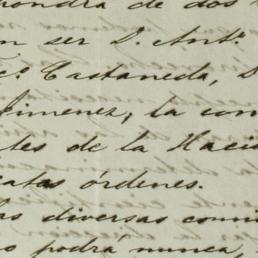 ondra de dos
n ser D. Antº
cº Castaneda, D
Jimenez; la com
tes de la Haci
catas órdenes.
las diversas comi
o podrá nunca,